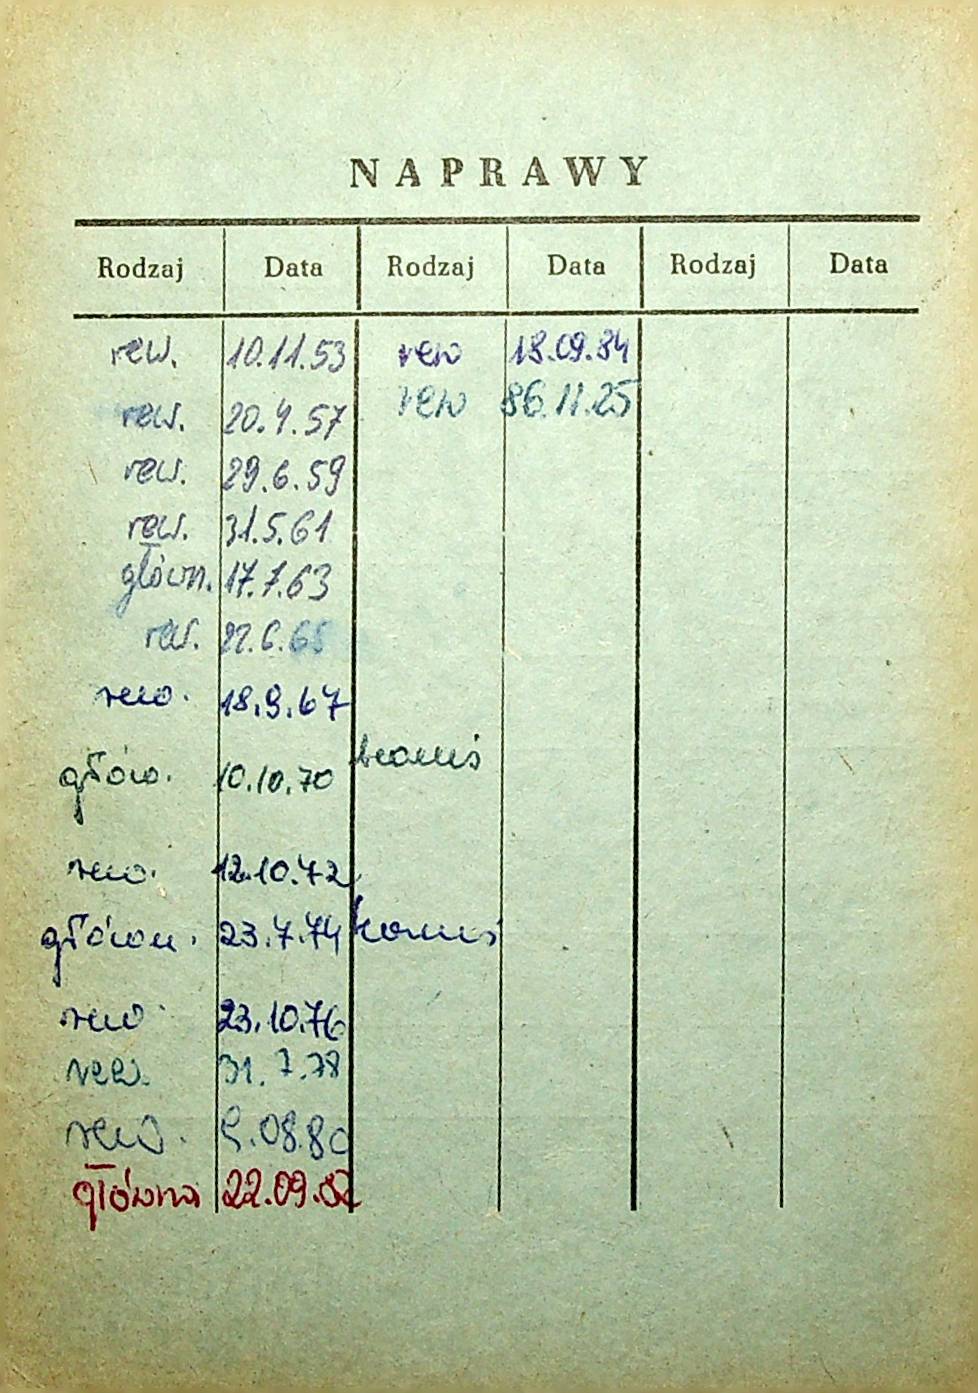 NAPRAWY
Rodzaj Data Rodzaj Data Rodzaj Data
rew. 10.11.53 rew 18.09.84
rew. 20.4.57 rew 86.11.25
rew. 29.6.59
rew. 31.5.61
główn. 17.7.63
rew. 22.6.65
rew. 18.9.67
głów. 10.10.70
rew. 12.10.72
główn. 23.7.74
rew. 23.10.76
rew. 31.7.78
rew. 5.08.80
główna 22.09.82